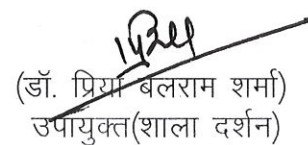 (डॉ. प्रिया बलराम शर्मा)
उपायुक्त(शाला दर्शन)